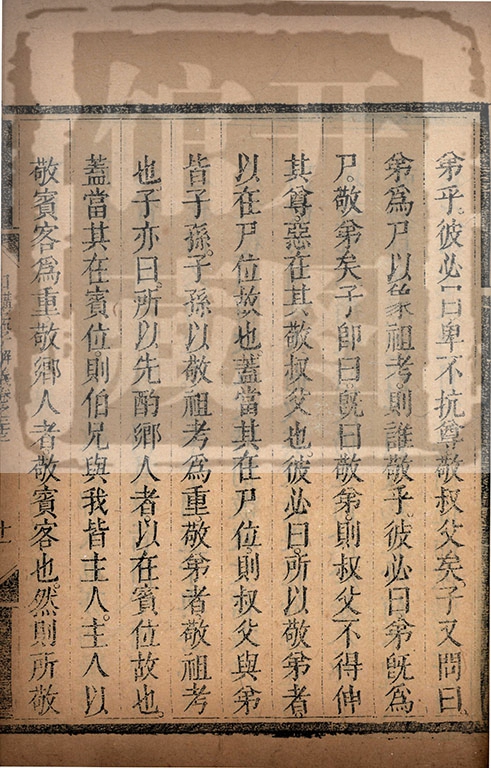 弟乎彼必曰卑不抗尊敬叔父矣子又問曰
弟為尸以象祖考則誰敬乎彼必曰弟旣為
尸敬弟矣子卽曰旣曰敬弟則叔父不得伸
其尊惡在其敬叔父也彼必曰所以敬弟者
以在尸位故也蓋當其在尸位則叔父與弟
皆子孫子孫以敬祖考為重敬弟者敬祖考
也子亦曰所以先酌鄉人者以在賓位故也
蓋當其在賓位則伯兄與我皆主人主人以
敬賓客為重敬鄉人者敬賓客也然則所敬